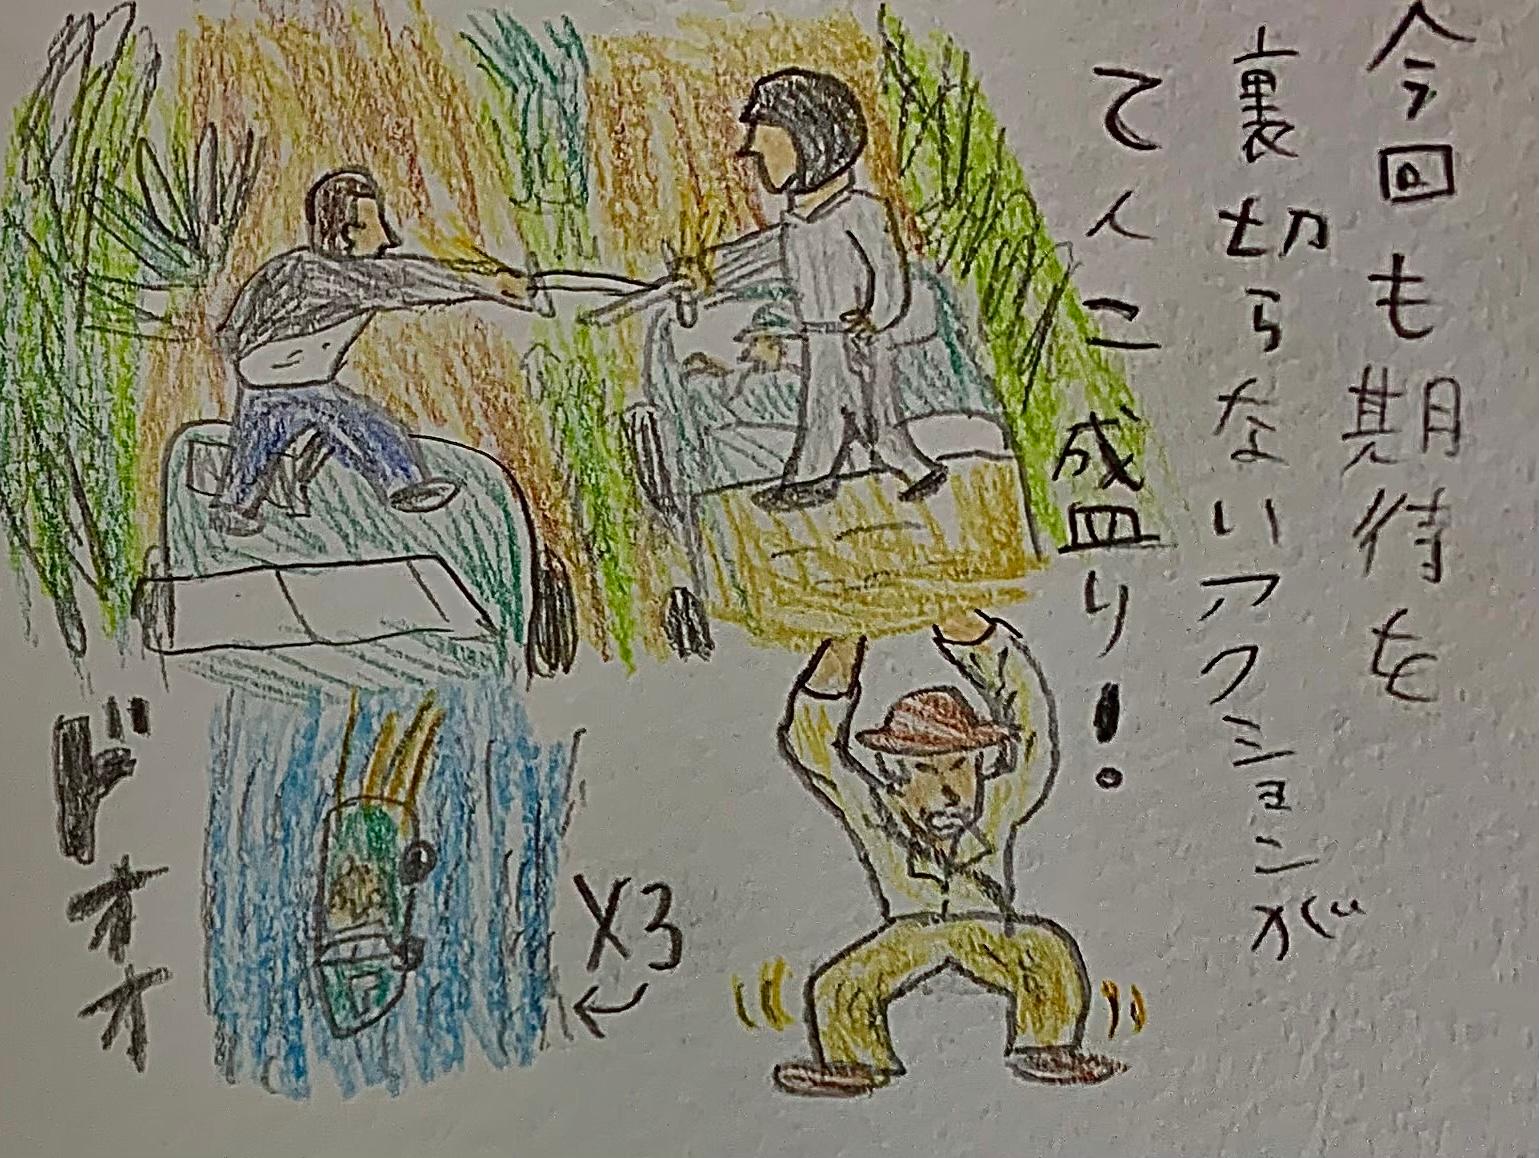 今回も期待を
裏切らないアクションが
てんこ成皿り！
ドオオ
X3